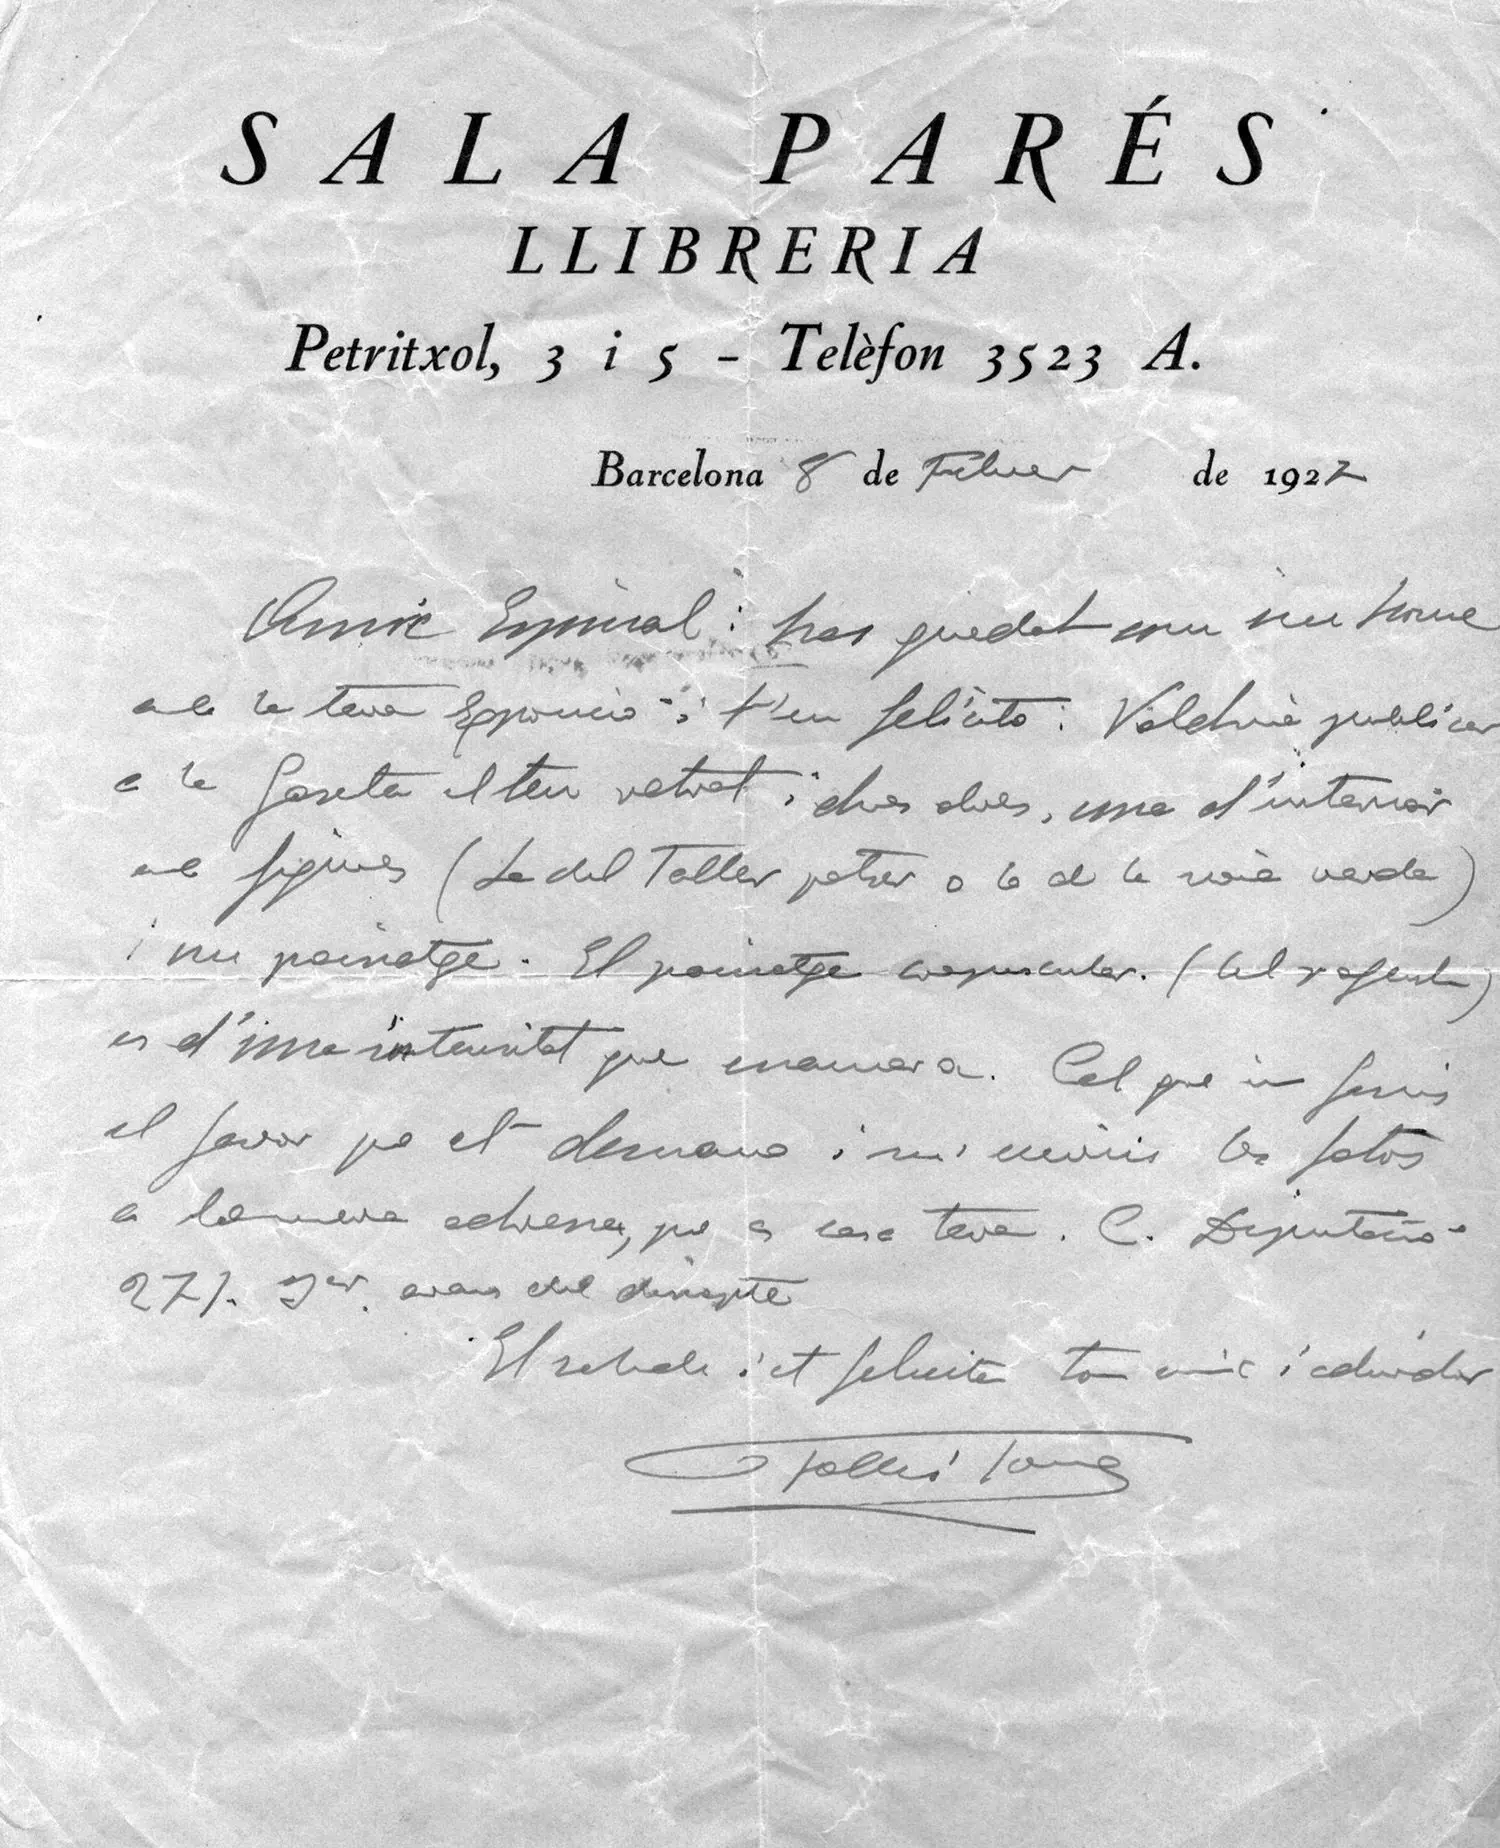 SALA PARÉS
LLIBRERIA
Petritxol, 3 i 5 - Telèfon 3523 A.
Barcelona 8 de Febrer de 1927
Amic Espinal: has quedat com un home
amb la teva Exposició i t'en felicito. Valdria publicar
a la Gaseta el teu retrat i dues obres, una d'interior
amb figures (la del Taller potser o la de la noia verda)
i un paisatge. El paisatge crepuscular. (del
es d'una intensitat que enamora. Cal que em fassis
el favor que et demano i m'enviis les fotos
a la meva adressa, que es casa teva. C. Diputació
271. 3er. avans del dissapte
El saluda i et felicita ton amic i admirador